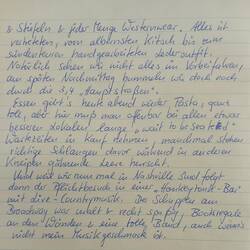 & Stiefeln & jeder Menge Westernwear. Alles ist
vertreten, vom allerletzten Kitsch bis zur
sündteuren handgearbeiteten Lederoutfit.
Natürlich sehen wir nicht alles im Vorbeifahren,
am späten Nachmittag bummeln wir doch noch
durch die 3,4 "Hauptstraßen".
Essen gibt's heut abend wieder Pasta, ganz
toll, aber hier muß man offenbar bei allen etwas
besseren Lokalen lange "wait to be seated"
Wartezeiten in Kauf nehmen, manchmal stehen
richtige Schlangen davor während in anderen
Kneipen gähnende Leere herrscht.
Und weil wir nun mal in Nashville sind folgt
dann der Pflichtbesuch in einer "Honkeytonk-Bar"
mit live-Countrymusik. Der Schuppen am
Broadway war uralt & recht spaßig, Bücherregale
an den Wänden & eine tolle Band, auch wenns
nicht mein Musikgeschmack ist.